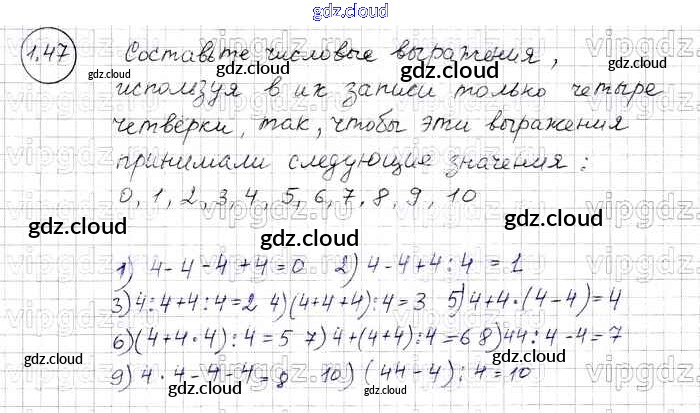 gdz.cloud
1.47 Составьте числовые выражения,
gdz.cloud gdz.cloud gdz.cloud
используя в их записи только четыре
четвёрки, так, чтобы эти выражения
принимали следующие значения:
0, 1, 2, 3, 4, 5, 6, 7, 8, 9, 10
gdz.cloud gdz.cloud gdz.cloud
1) 4-4-4+4=0 2) 4-4+4:4=1
3) 4:4+4:4=2 4) (4+4+4):4=3 5) 4+4·(4-4)=4
6) (4+4·4):4=5 7) 4+(4+4):4=6 8) 44:4-4=7
gdz.cloud gdz.cloud gdz.cloud
9) 4·4-4-4=8 10) (44-4):4=10
gdz.cloud
vipgdz.ru